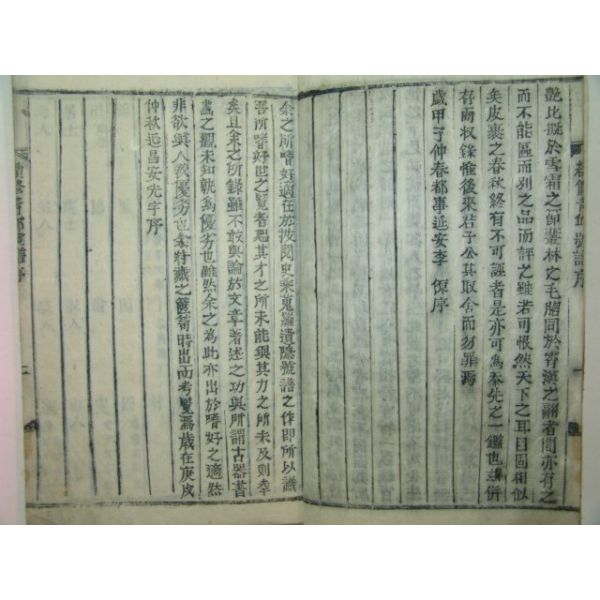 艶比擬於雪霜之節叢林之毛膓同於霄漢之翮者間亦有之
而不能區而別之品而評之雖若可恨然天下之耳目固相似
矣皮裹之春秋終有不可誣者是亦可為忝先之一鑑也遂併
存而收錄惟後來若子公其取舍而勿罪焉
歲甲子仲春都事延安李 序
余之所嗜好適在於披閱史乘蒐羅遺隱號譜之作即所以識
吾所嗜好世之覽者恕其才之所未能與其力之所未及則幸
矣且余之所錄雖不敢與論於文章著述之功與所謂古器書
畵之觀未知孰為優劣也雖然余之為此亦出於嗜好之適然
非欲與人較優劣也聊將藏之篋笥時出而考覽焉歲在庚戌
仲秋近昌安光宇序